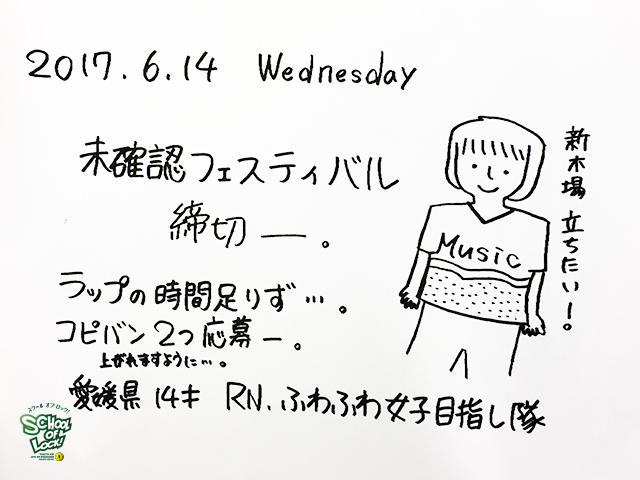 2017.6.14 Wednesday
未確認フェスティバル
締切ー。
ラップの時間足りず…。
コピバン2つ応募ー。
上がれますように…。
愛媛県 14才 RN.ふわふわ女子目指し隊
新木場 立ちたい!。
Music
スクール オブ ロック!
SCHOOL OF LOCK!